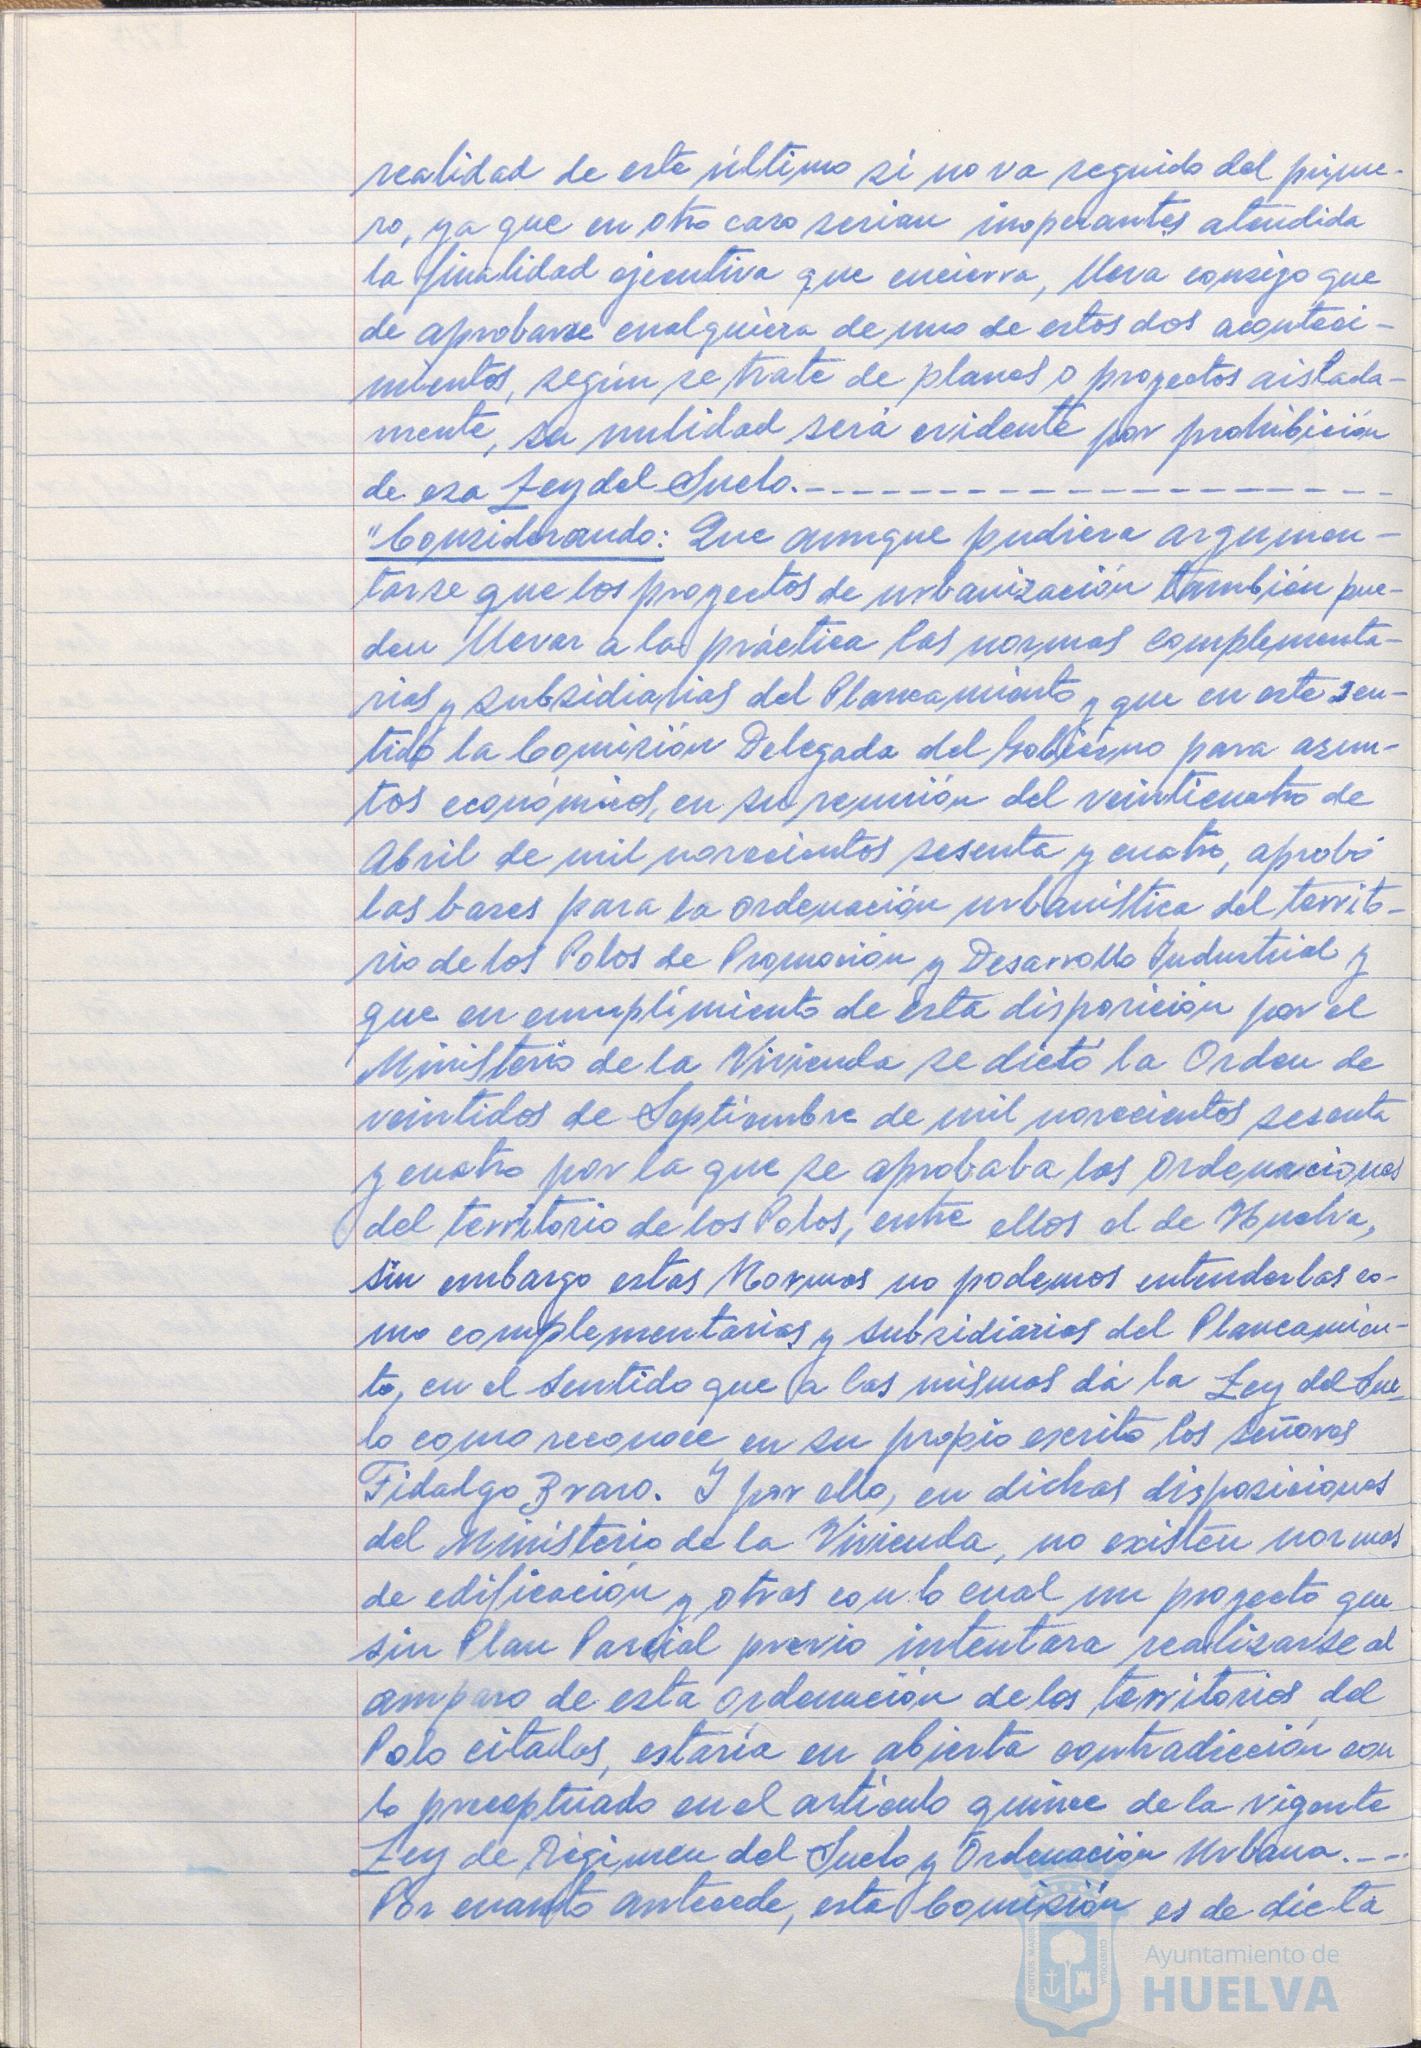 realidad de este último si no va seguido del prime-
ro, ya que en otro caso serian inoperantes atendida
la finalidad ejecutiva que encierra, lleva consigo que
de aprobarse cualquiera de uno de estos dos aconteci-
mientos, según se trate de planes o proyectos aislada-
mente, su nulidad será evidente por prohibición
de esa Ley del Suelo.-------------------
"Considerando: Que aunque pudiera argumen-
tarse que los proyectos de urbanización también pue-
den llevar a la práctica las normas complementa-
rias y subsidiarias del Planeamiento y que en este sen-
tido la Comisión Delegada del Gobierno para asun-
tos económicos, en su reunión del veinticuatro de
Abril de mil novecientos sesenta y cuatro, aprobó
las bases para la ordenación urbanistica del territo-
rio de los Polos de Promoción y Desarrollo Industrial y
que en cumplimiento de esta disposición por el
Ministerio de la Vivienda se dictó la Orden de
veintidos de Septiembre de mil novecientos sesenta
y cuatro por la que se aprobaba las Ordenaciones
del territorio de los Polos, entre ellos el de Huelva,
sin embargo estas Normas no podemos entenderlas co-
mo complementarias y subsidiarias del Planeamien-
to, en el sentido que a las mismas dá la Ley del Sue-
lo como reconoce en su propio escrito los señores
Fidalgo Bravo. Y por ello, en dichas disposiciones
del Ministerio de la Vivienda, no existen normas
de edificación y otras con lo cual un proyecto que
sin Plan Parcial previo intentara realizarse al
amparo de esta ordenación de los territorios del
Polo citados, estaría en abierta contradicción con
lo preceptuado en el artículo quince de la vigente
Ley de Régimen del Suelo y Ordenación Urbana.---
Por cuanto antecede, esta Comisión es de dicta
PORTUS MARIS
CUSTODIA
Ayuntamiento de
HUELVA